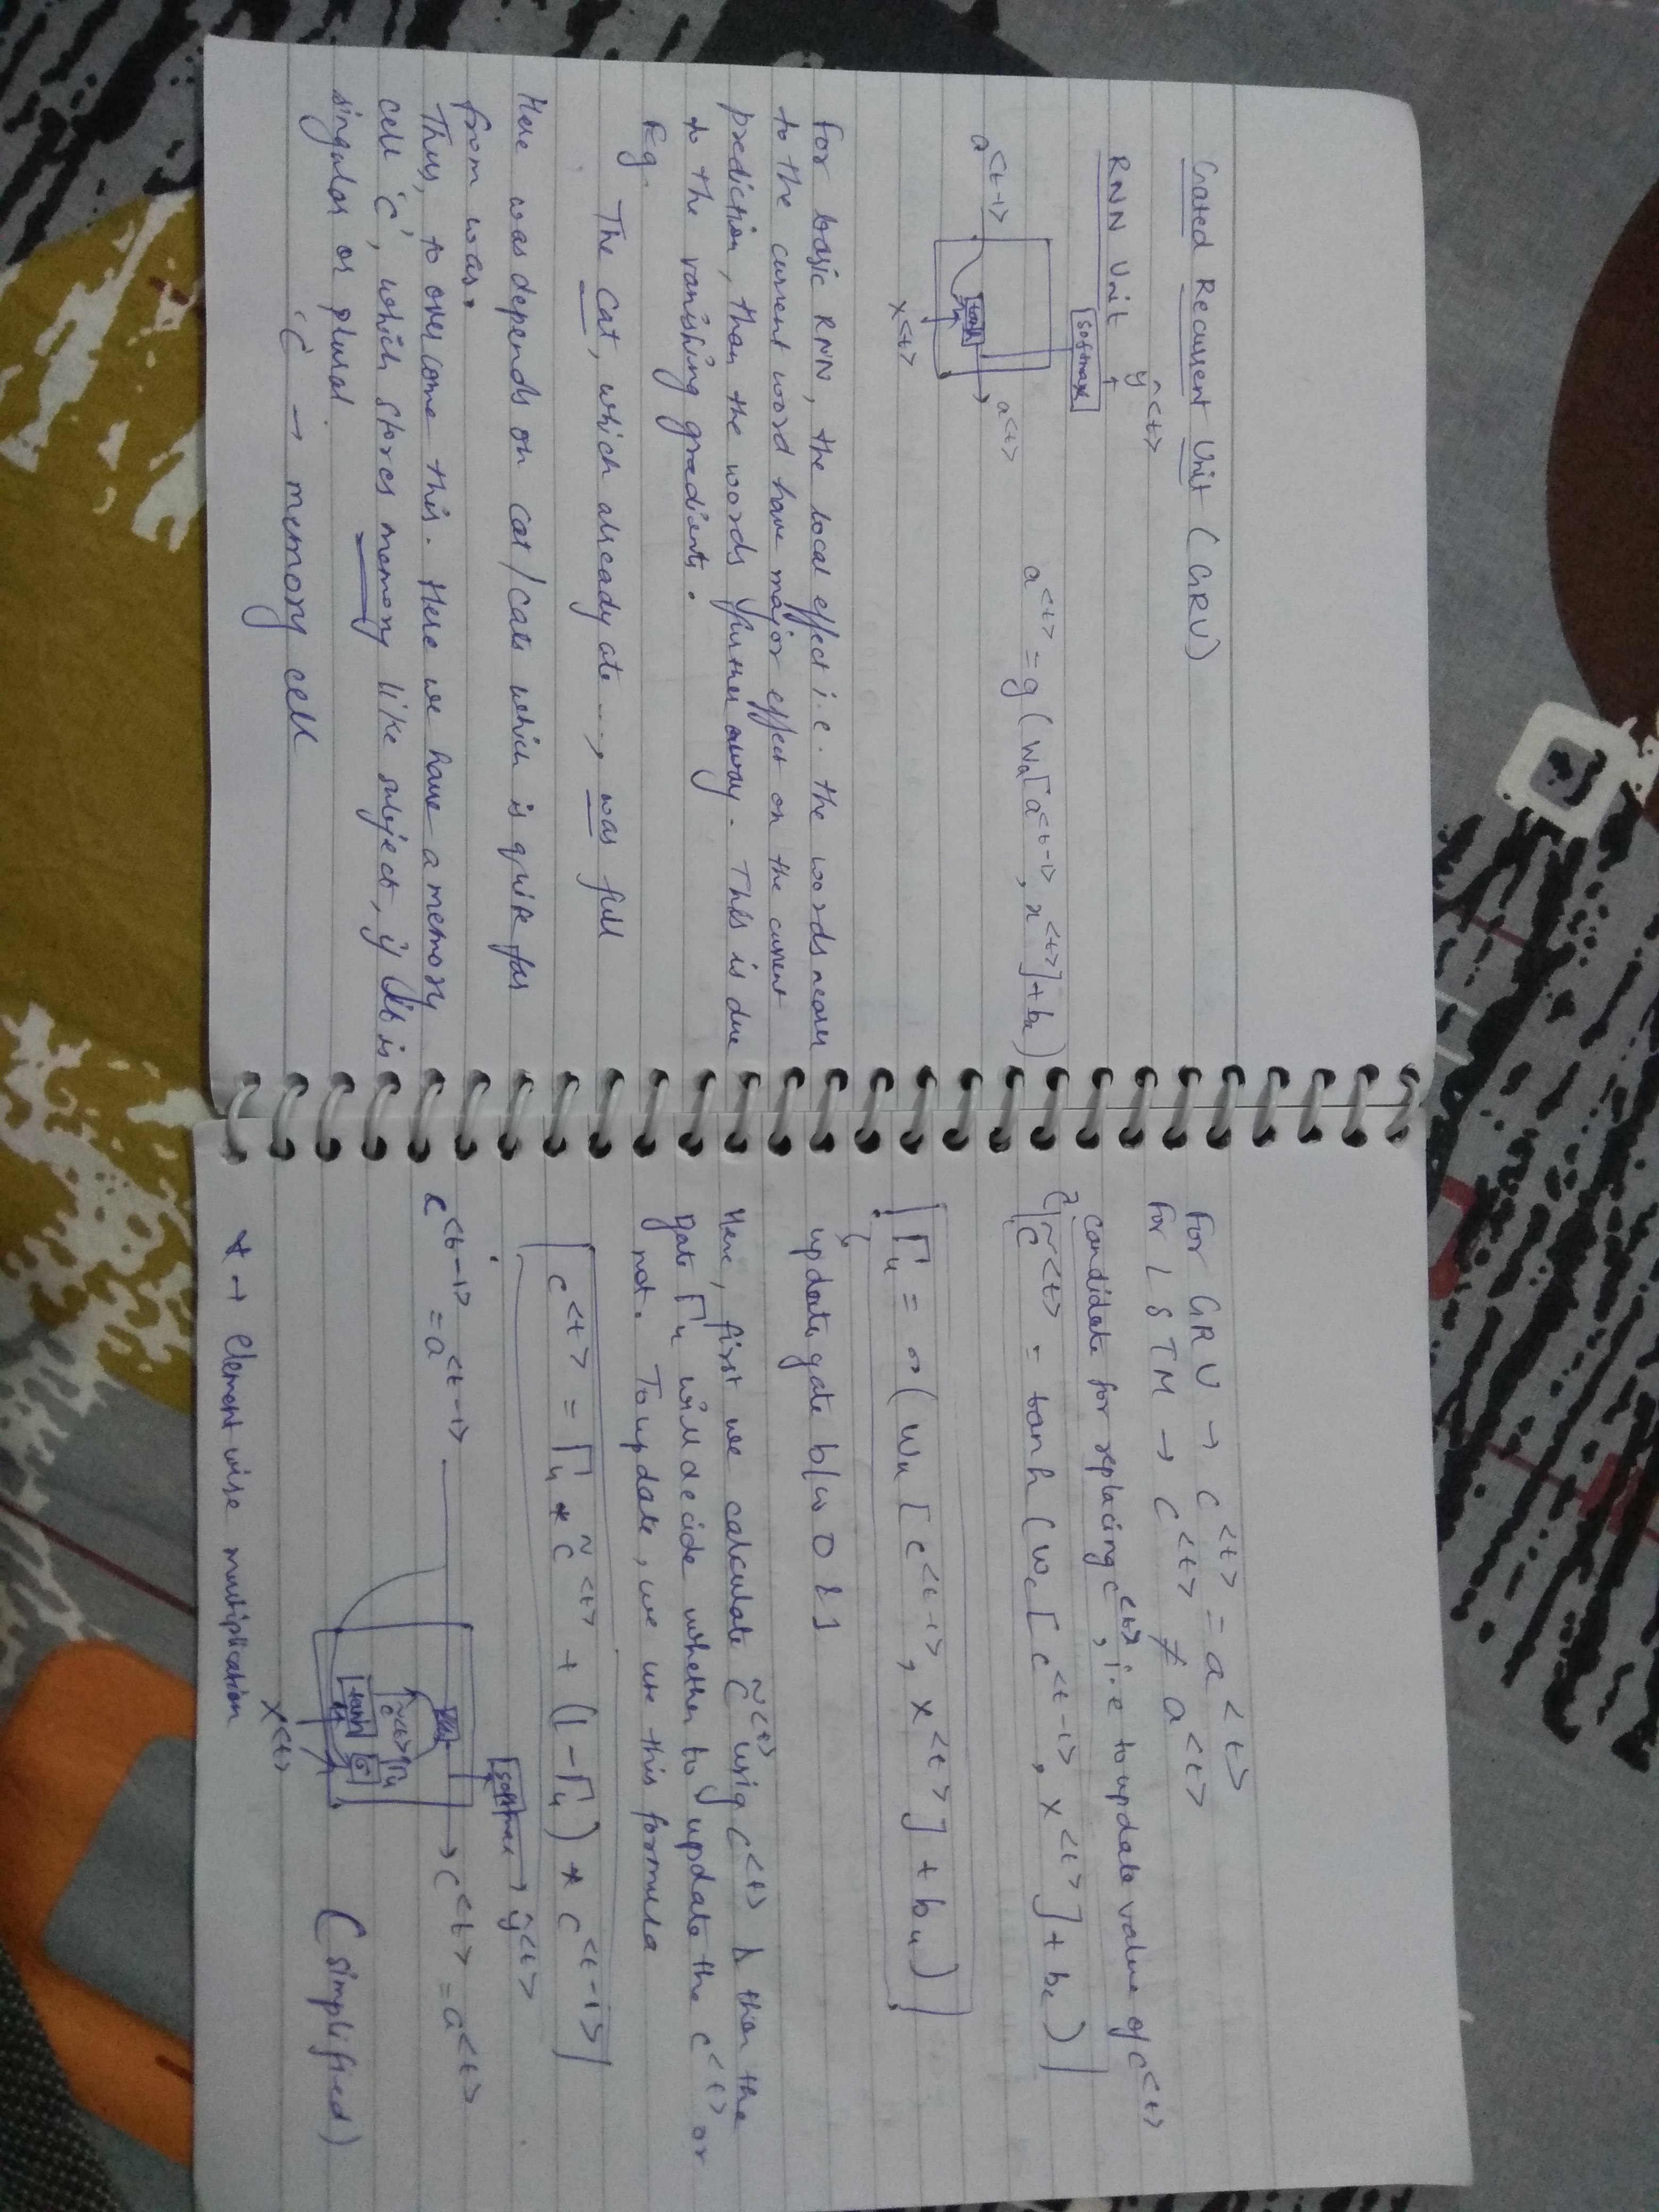 Gated Recurrent Unit (GRU)
RNN Unit
ŷ<t>
softmax
a<t-1>
tanh
a<t>
x<t>
a<t> = g(Wa[a<t-1>, x<t>] + ba)
For basic RNN, the local effect i.e. the words nearer
to the current word have major effect on the current
prediction, than the words further away. This is due
to the vanishing gradients.
Eg.
The cat, which already ate ...., was full
Here was depends on cat/cats which is quite far
from was.
Thus, to overcome this. Here we have a memory
cell 'C', which stores memory like subject, if it is
singular or plural
'C' → memory cell
For GRU → c<t> = a<t>
For LSTM → c<t> ≠ a<t>
candidate for replacing c<t>, i.e to update value of c<t>
c̃<t> = tanh(Wc[c<t-1>, x<t>] + bc)
Γu = σ(Wu[c<t-1>, x<t>] + bu)
update gate b/w 0 & 1
Here, first we calculate c̃<t> using c<t> & then the
gate Γu will decide whether to update the c<t> or
not. To update, we use this formula
c<t> = Γu * c̃<t> + (1 - Γu) * c<t-1>
softmax → ŷ<t>
c<t-1> = a<t-1>
→ c<t> = a<t>
c̃<t> Γu
tanh σ
x<t>
(simplified)
* → element wise multiplication